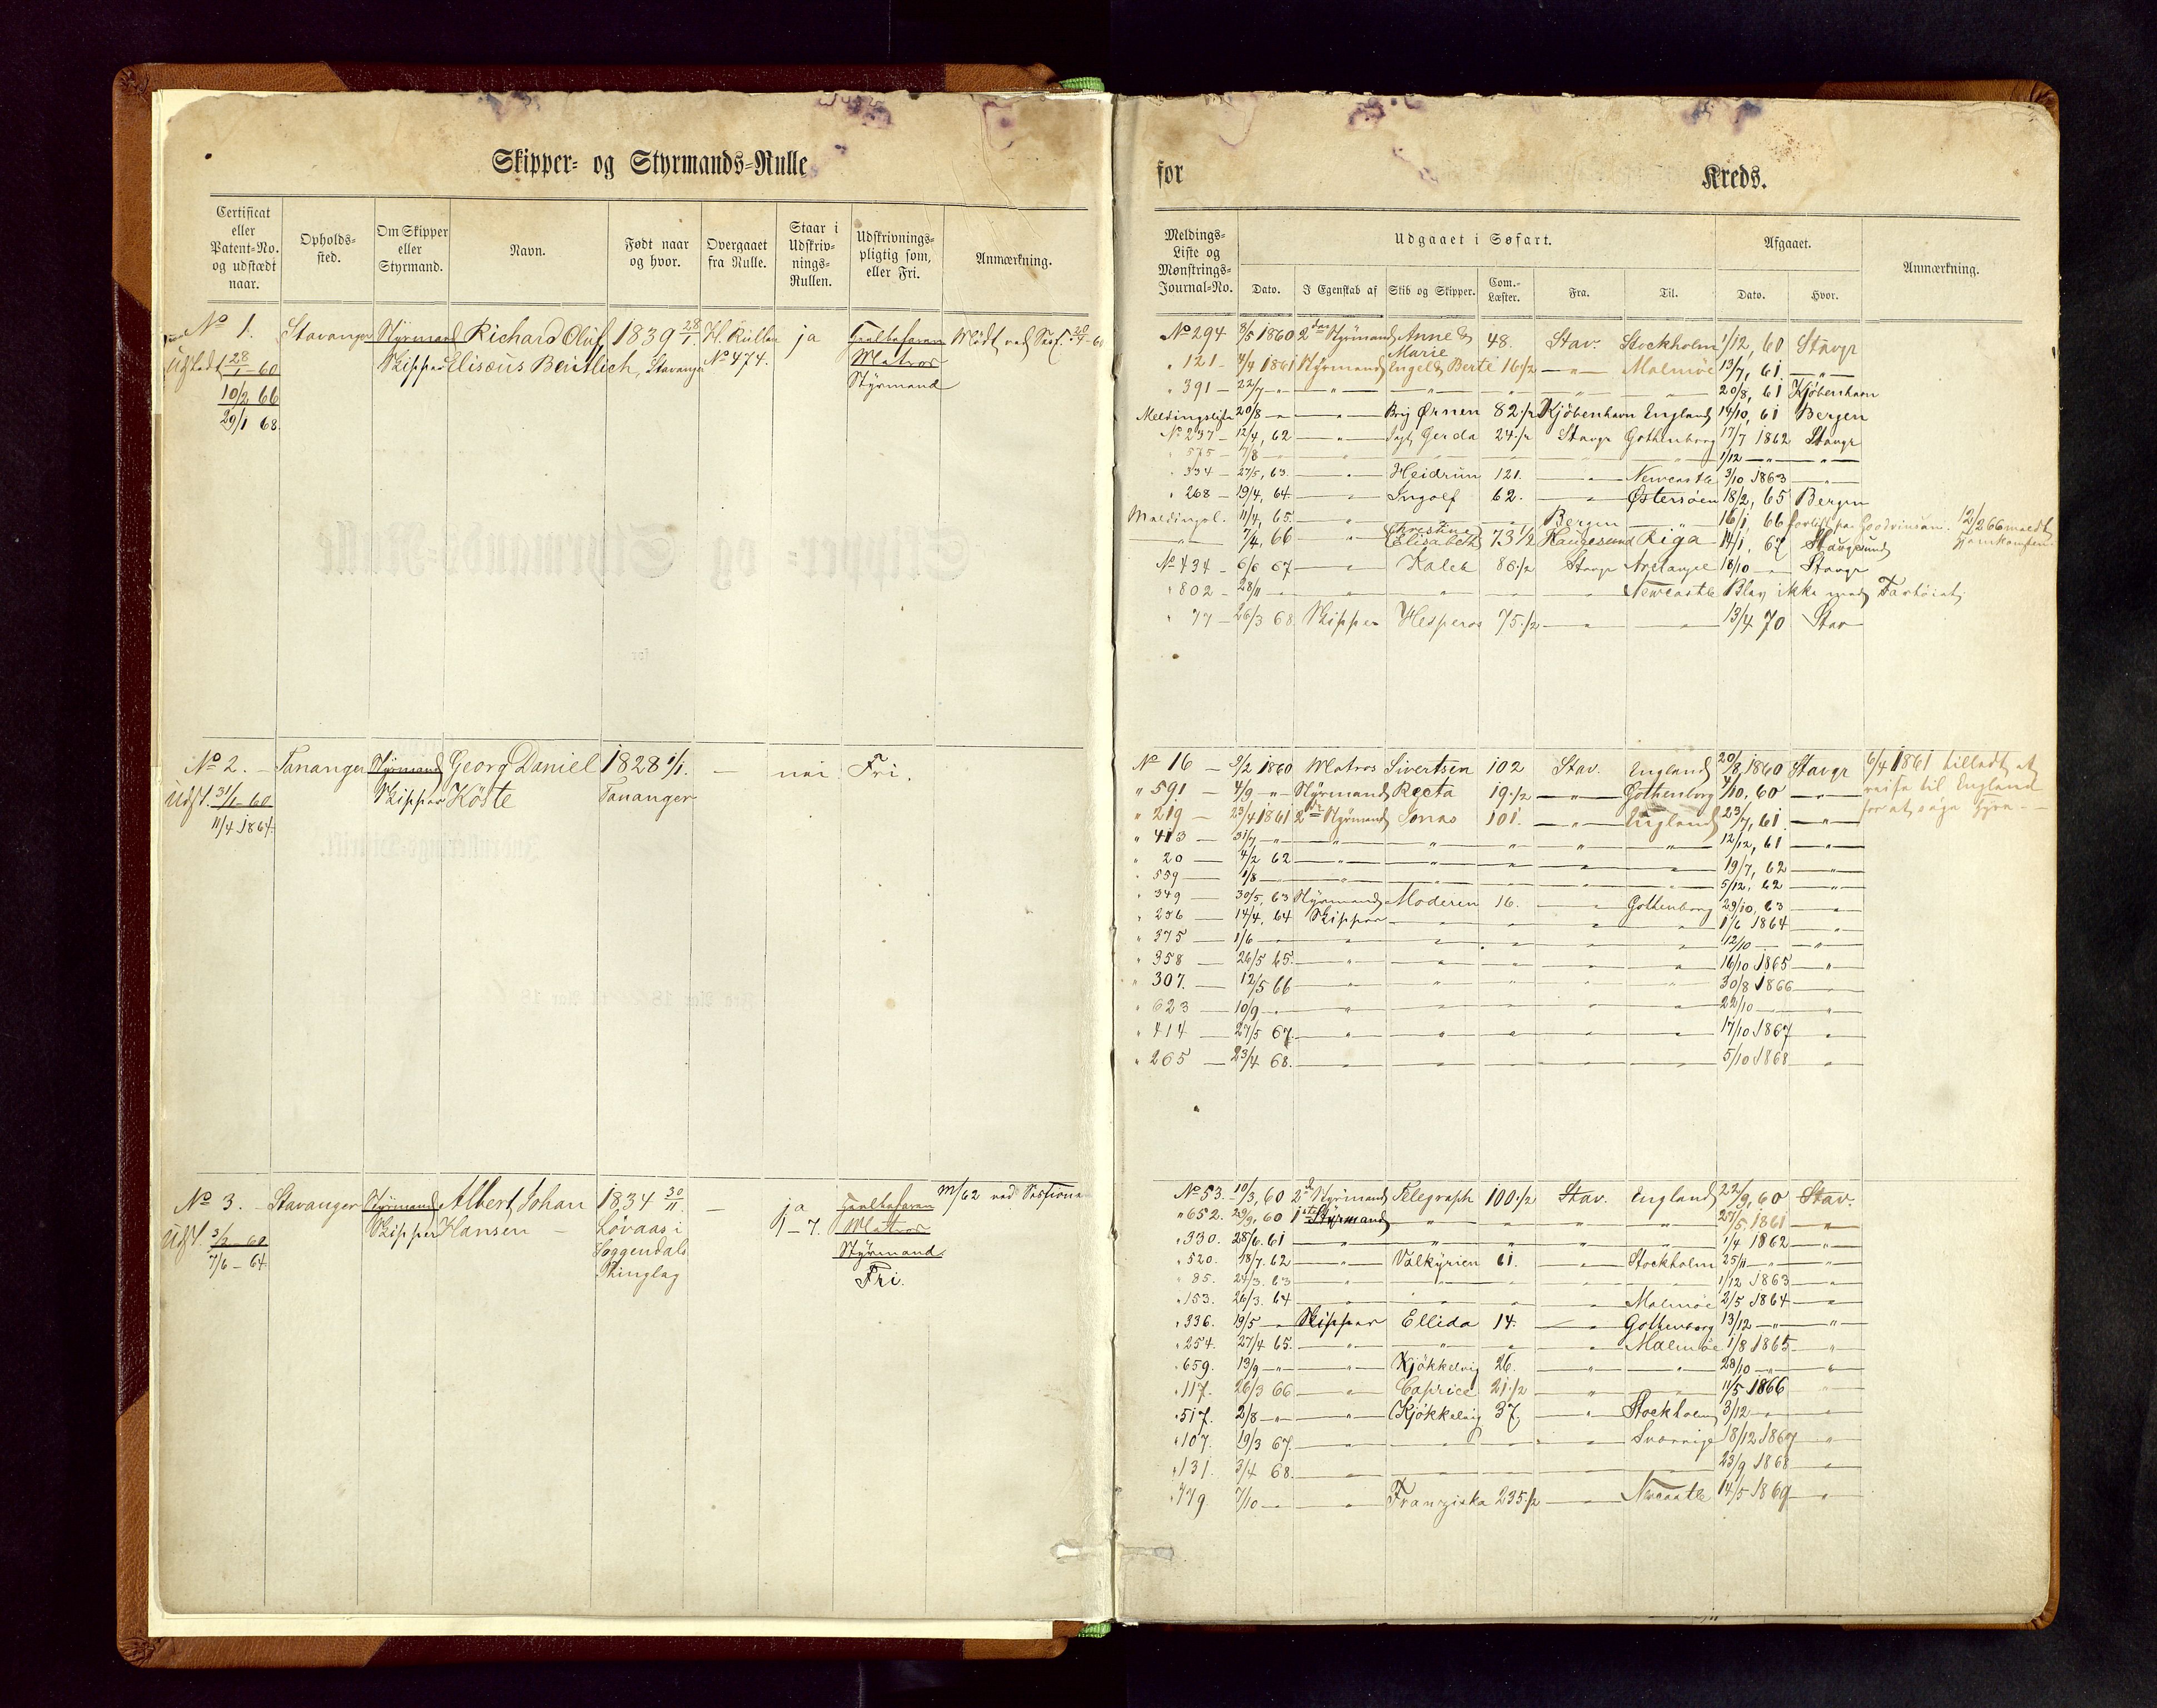 Skipper- og Styrmands-Rulle
for Kreds.
Certificat eller Patent-No. og udstædt naar.
Opholds-sted.
Om Skipper eller Styrmand.
Navn.
Født naar og hvor.
Overgaaet fra Rulle.
Staar i Udskriv-nings-Rullen.
Udskrivnings-pligtig som, eller Fri.
Anmærkning.
Meldings-Liste og Mønstrings-Journal-No.
Udgaaet i Søfart.
Dato.
I Egenskab af
Skib og Skipper.
Com.-Læster.
Fra.
Til.
Afgaaet.
Dato.
Hvor.
Anmærkning.
No 1. Stavanger Styrmand Richard Oluf 1839 28/1. H. Rullen ja
Udstedt 28/1 60 Skipper Elisæus Bentlich, Stavanger No 474. Matros
10/2 66 Styrmand
29/1 68
No 294 8/5 1860 2den Styrmand Anne & Marie 48. Stav. Stockholm 1/12, 60 Stavgr
" 121 - 4/4 1861 Styrmand Engel & Berte 16 1/2 — " — Malmöe 13/7, 61 — " —
" 391 - 22/7 — " — 20/8, 61 Kjöbenhavn
Meldingsliste 20/8 — " — Brig Ørnen 82 1/2 Kjöbenhavn England 14/10, 61 Bergen
No 237 - 12/4, 62 — " — Gerda 24 1/2 Stavgr Gothenborg 17/7 1862 Stavgr
" 575 - 7/8 — " — 1/12 — " —
" 334 - 27/5, 63 — " — Heidrun 121. — " — Newcastle 3/10 1863 — " —
" 268 - 19/4, 64 — " — Ingolf 62. — " — Østersöen 18/2, 65 Bergen
Meldingsl. 11/4, 65. — " — Bergen — " — 16/1, 66 12/2 66 meldt
— " — 7/4, 66 — " — Christine Elisabeth 73 1/2 Haugesund Riga 14/1, 67 Haugesund hjemkomsten
No 434 - 6/6 67 — " — Kaleb 86 1/2 Stavgr Archangel 18/10 — " — Stavgr
" 802 - 28/11 — " — Newcastle Blev ikke med Fartöiet
" 77 - 26/3 68 Skipper Hesperus 75 1/2 — " — 13/4 70 Stav
No 2. - Tananger Styrmand Georg Daniel 1828 1/1. — nei Fri.
Udst. 31/1 60 Skipper Köste Tananger
11/4 1864
No 16 - 9/2 1860 Matros Sivertsen 102 Stav. England 20/8 1860 Stavgr 6/4 1861 tilladt at
" 591 - 4/9 — " — Styrmand Recta 19 1/2 — " — Gothenborg 4/10, 60 — " — reise til England
" 219 - 23/4 1861 2den Styrmand Jonas 101. — " — England 23/7, 61. — " — for at söge Hyre
" 413 - 31/7 — " — 12/12, 61 — " —
" 20 - 4/2 62 — " — 19/7, 62 — " —
" 559 - 1/8 — " — 5/12, 62 — " —
" 349 - 30/5, 63 Styrmand Moderen 16. — " — Gothenborg 29/10, 63 — " —
" 236 - 14/4, 64 Skipper — " — 1/6 1864 — " —
" 375 - 1/6 — " — 12/10 — " —
" 358 - 26/5 65. — " — 16/10 1865 — " —
" 307. - 12/5 66 — " — 30/8 1866 — " —
" 623 - 10/9 — " — 22/10 — " —
" 414 - 27/5 67. — " — 17/10 1867 — " —
" 265 - 23/4 68. — " — 5/10 1868 — " —
No 3. - Stavanger Styrmand Albert Johan 1834 30/11. — ja m/62 ved Sessionen
Udst. 3/2 60 Skipper Hansen - Lövaas i 1-7. Matros
7/6 - 64 Soggendals Styrmand
Thinglag Fri.
No 53. 10/3, 60 2den Styrmand Telegraph 100 1/2 Stav. England 22/9, 60 Stav.
" 652. 29/9, 60 1ste Styrmand — " — 27/5 1861 — " —
" 330. 28/6. 61 — " — 1/4 1862 — " —
" 520. 18/7. 62 — " — Valkyrien 61. — " — Stockholm 25/11 — " —
" 85. 24/3. 63 — " — 1/12 1863 — " —
" 153. 26/3. 64 — " — Malmöe 2/5 1864 — " —
" 336. 19/5 — " — Skipper Ellida 14. — " — Gothenborg 13/12 — " —
" 254. 27/4 65. — " — Malmöe 1/8 1865 — " —
" 659. 13/9 — " — Kjökkelvig 26. — " — 28/10 — " —
" 117. 26/3 66 — " — Caprice 21 1/2 — " — 11/5 1866 — " —
" 517. 2/8 — " — Kjökkelvig 37, — " — Stockholm 3/12 — " —
" 107. 19/3 67. — " — Sverrige 18/12 1867 — " —
" 131. 3/4 68. — " — 23/9 1868 — " —
" 479 7/10 — " — Franziska 235 1/2 — " — Newcastle 14/5 1869 — " —